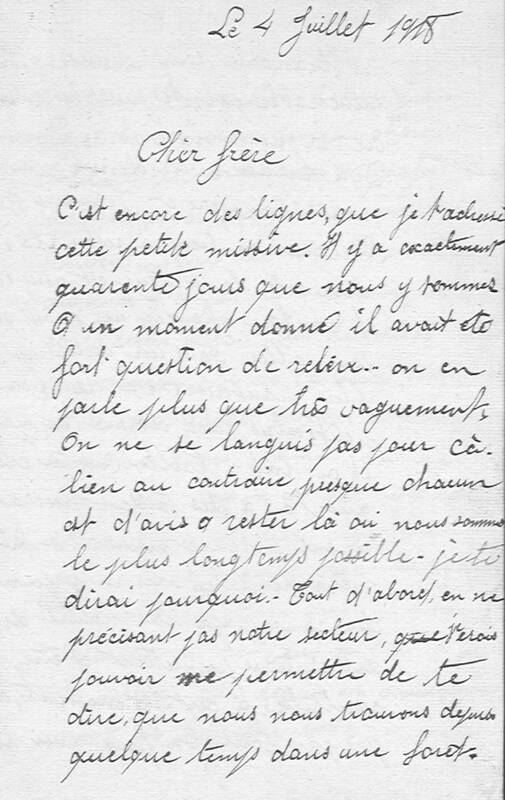 Le 4 Juillet 1918
Cher frère
C'est encore des lignes, que je t'adresse
cette petite missive. Il y a exactement
quarente jours que nous y sommes
A un moment donné il avait été
fort question de relève.. on en
parle plus que très vaguement.
On ne se languis pas pour cà.
bien au contraire, presque chacun
est d'avis à rester là où nous sommes
le plus longtemps possible - je te
dirai pourquoi. - Tout d'abord, en ne
précisant pas notre secteur, que crois
pouvoir me permettre de te
dire, que nous nous trouvons depuis
quelque temps dans une forêt.